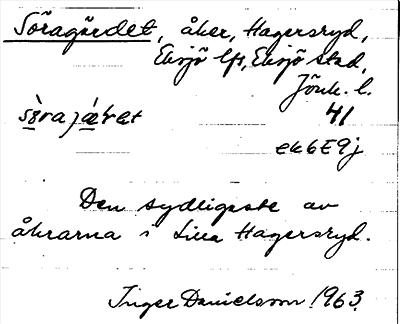 Söragärdet, åker, Hagersryd,
Eksjö lfs, Eksjö stad,
Jönk. l.
sö̀rajǽret 41
ek 6E9j
Den sydligaste av
åkrarna i Lilla Hagersryd.
Inger Danielsson 1963.